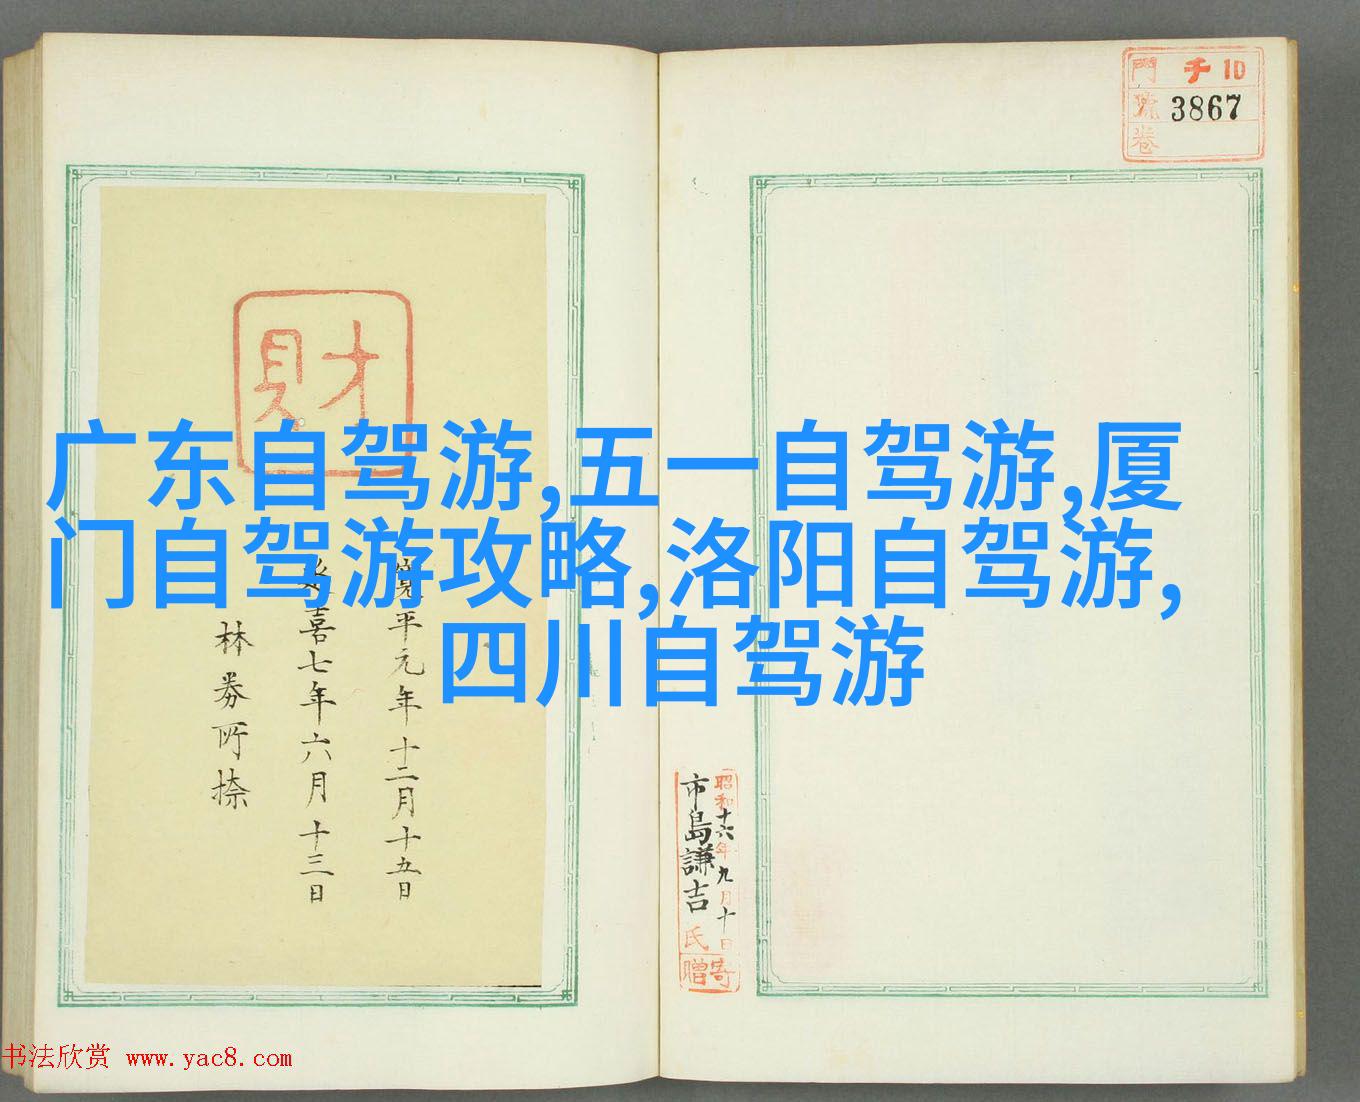 門 チ 10
號 3867
卷
財
广东自驾游,五一自驾游,厦
门自驾游攻略,洛阳自驾游,
四川自驾游
寛平元年十二月十五日
延喜七年六月十三日
林 所捺
昭和十六年九月十日
市島謙吉氏寄贈
书法欣赏 www.yac8.com